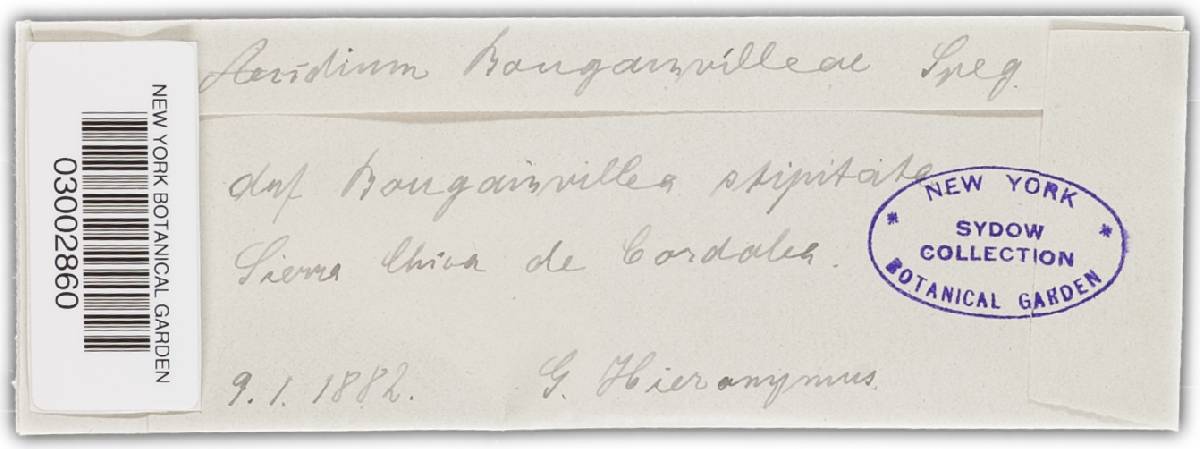 Aecidium Bougainvilleae Speg.
auf Bougainvillea stipitata
Sierra Chica de Cordoba.
9.1.1882. G. Hieronymus.
NEW YORK BOTANICAL GARDEN
03002860
NEW YORK
SYDOW
COLLECTION
BOTANICAL GARDEN